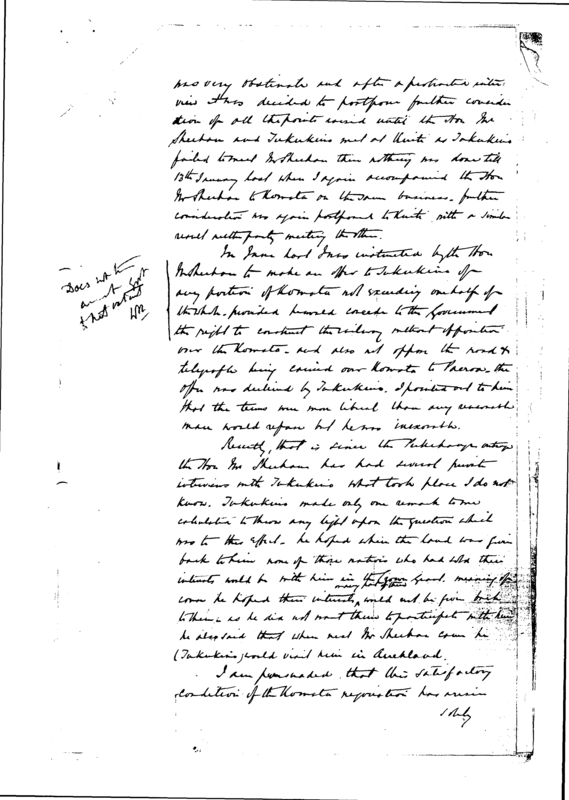 was very obstinate and after a protracted inter
view it was decided to postpone further consider
ation of all the points raised until the Hon Mr
Sheehan and Tukukino met at Thames as Tukukino
failed to meet Mr Sheehan then nothing was done till
13th January last when I again accompanied the Hon
Mr Sheehan to Komata on the same business. further
consideration was again postponed to with a similar
result neither party meeting the other.
In June last I was instructed by the Hon
Mr Sheehan to make an offer to Tukukino of
any portion of Komata not exceeding one half of
the whole provided he would concede to the Government
the right to construct the railway without opposition
over the Komata and also not oppose the road &
telegraph being carried over Komata to Paeroa. the
offer was declined by Tukukino. I pointed out to him
that the terms were more liberal than any reasonable
man would refuse but he was inexorable.
Recently, that is since the Pukehange
the Hon Mr Sheehan has had several private
interviews with Tukukino what took place I do not
know. Tukukino made only one remark to me
calculated to throw any light upon the question which
was to this effect. he hoped when the land was given
back to him none of those natives who had sold their
interests would be with him in the Crown Grant. meaning of
course he hoped their interests would not be given back
to them. as he did not want them to participate with him
he also said that when next Mr Sheehan came he
(Tukukino) would visit him in Auckland.
I am persuaded that this satisfactory
condition of the Komata negotiation has arisen
solely
Does
Sept
& that